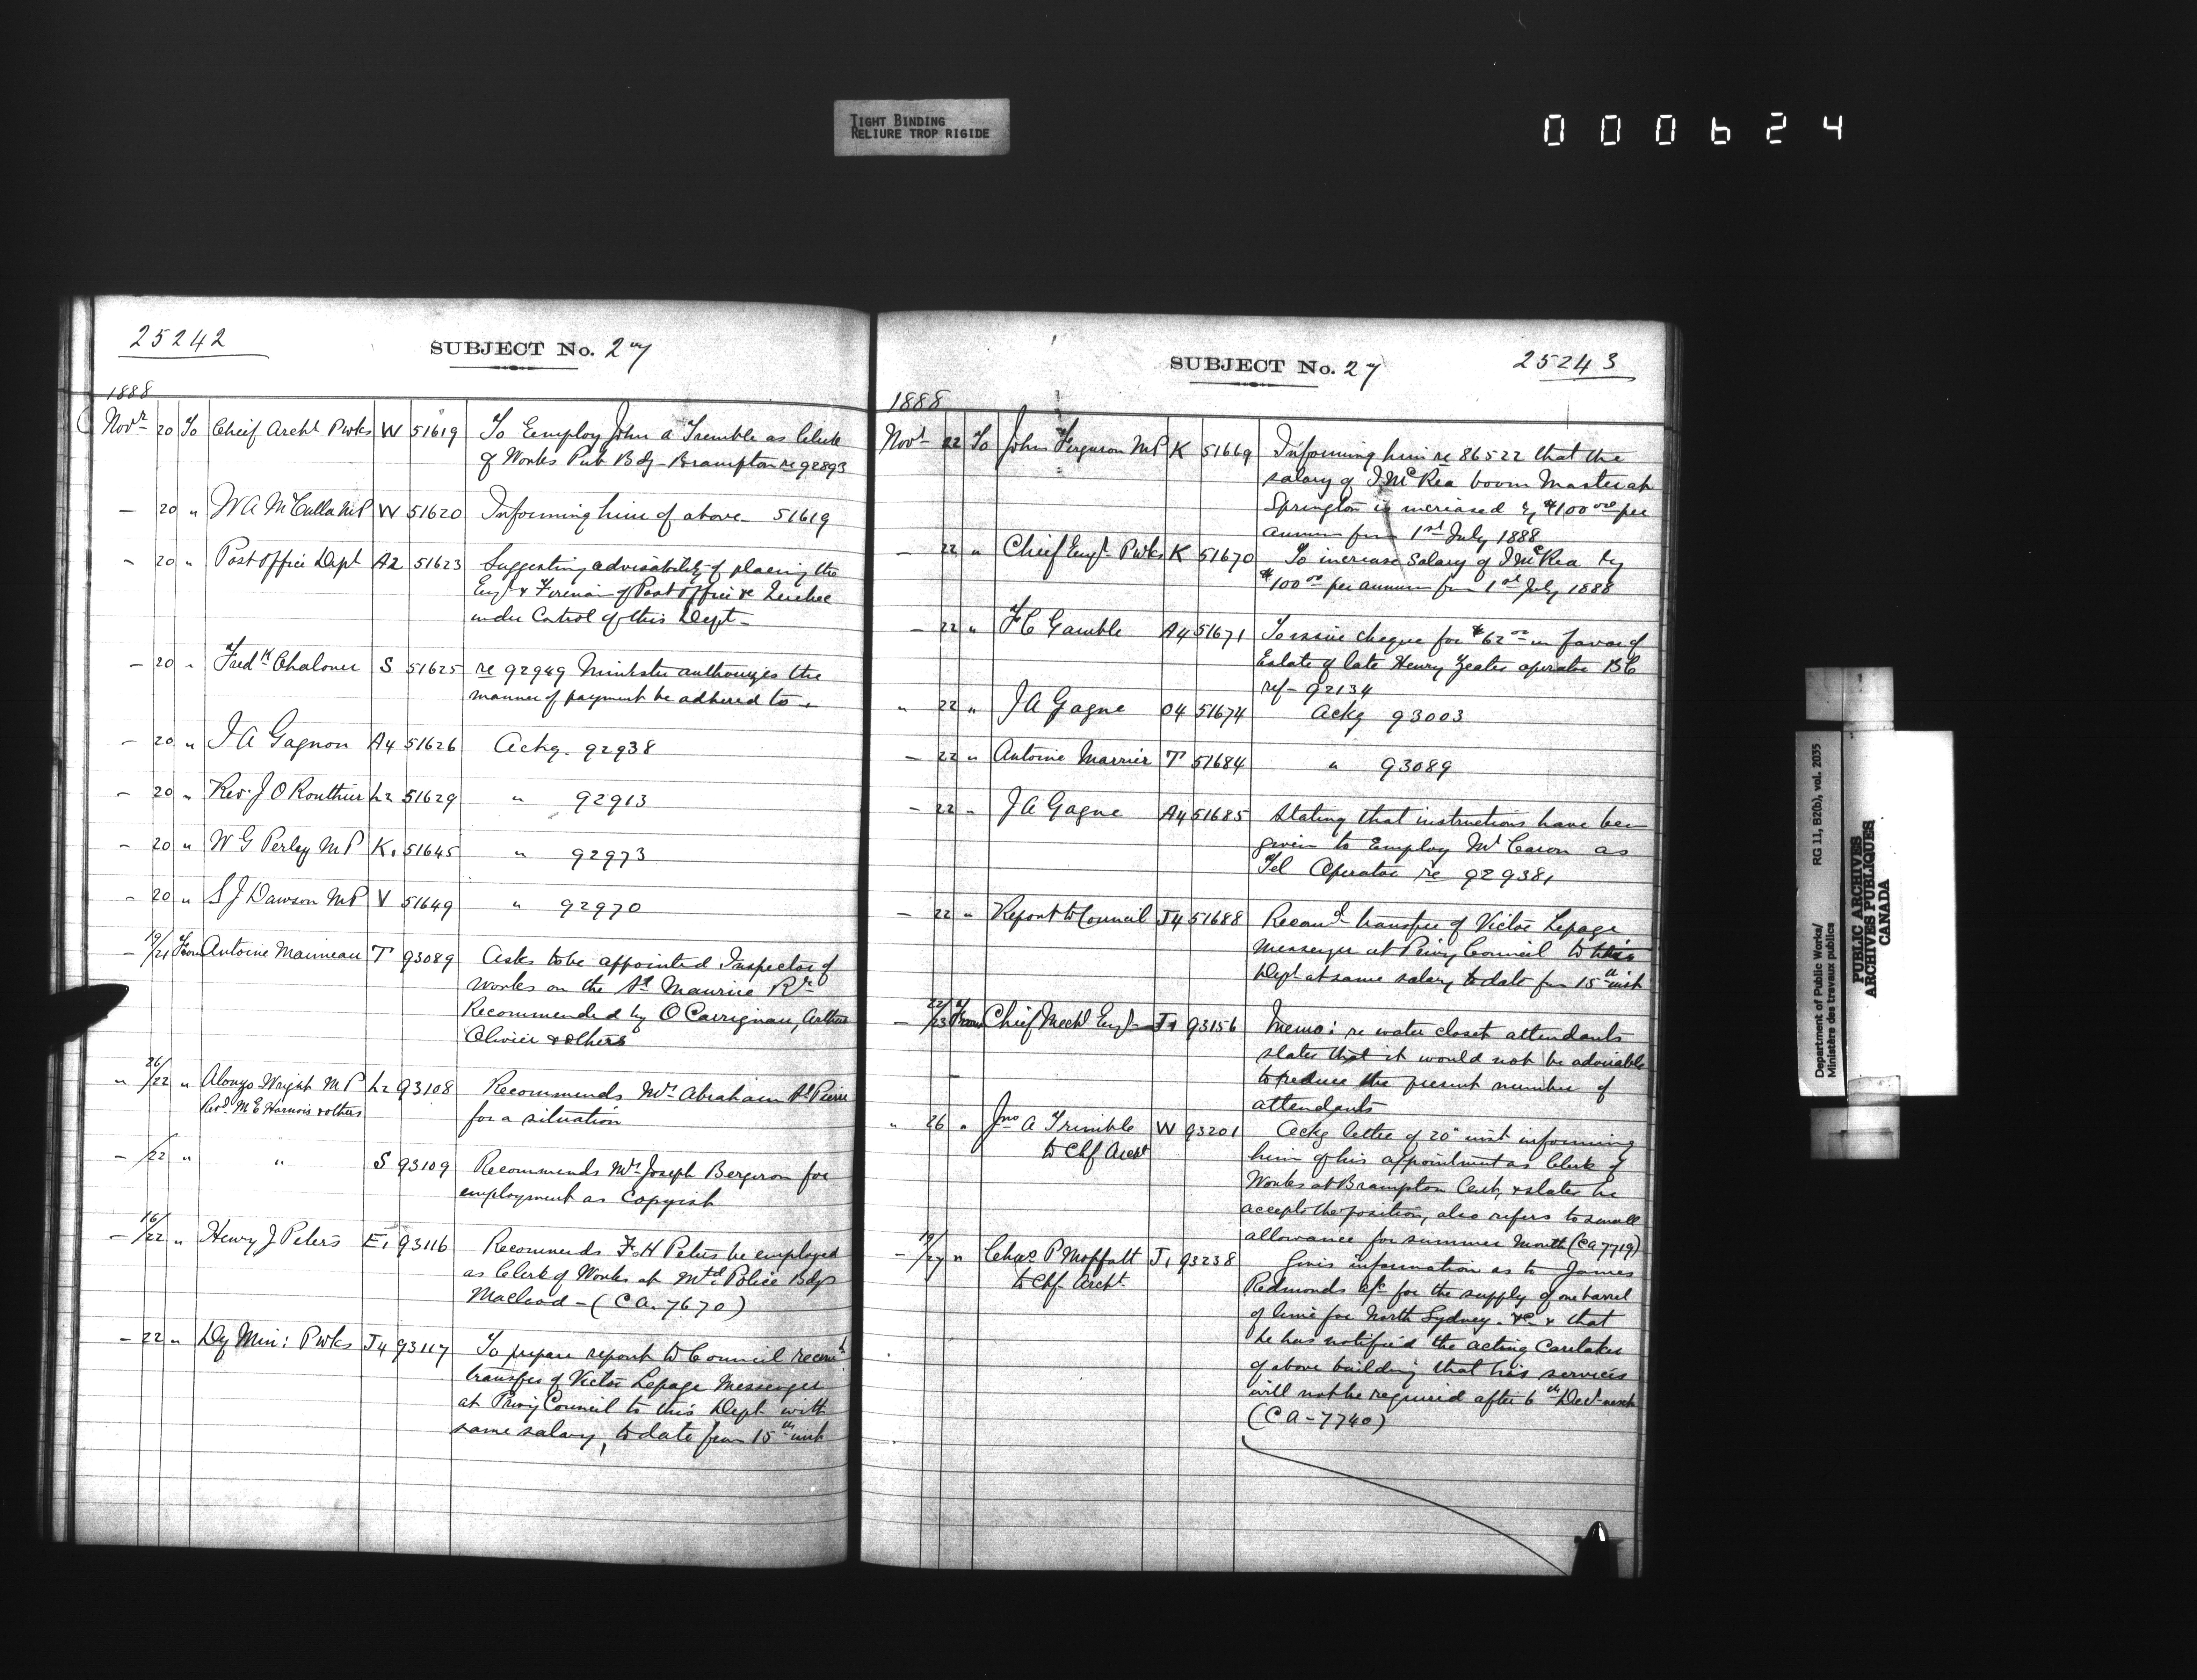 TIGHT BINDING
RELIURE TROP RIGIDE
000624
25242
SUBJECT No. 27
1888
Novr 20 To Cheif Archt Pwks W 51619 To Employ John A Tremble as Clerk
of Works Pub Bdg Brampton re 92893
— 20 " W A McCulla MP W 51620 Informing him of above — 51619
— 20 " Post Office Dept A2 51623 Suggesting advisability of placing the
Engr & Fireman of Post Office &c Quebec
under Control of this Dept —
— 20 " Fredk Chaloner S 51625 re 92949 Minister authorizes the
manner of payment be adhered to —
— 20 " J A Gagnon A4 51626 Ackg. 92938
— 20 " Rev. J O Routhier L2 51629 " 92913
— 20 " W G Perley MP K1 51645 " 92973
— 20 " S J Dawson MP V 51649 " 92970
— 19/21 From Antoine Marineau T 93089 Asks to be appointed Inspector of
works on the St Maurice Rr
Recommended by O Carrignan, Arthur
Olivier & others
" 26/22 " Alonzo Wright MP L2 93108 Recommends Mr Abraham St Pierre
Revd M E Harnois & others for a situation
— /22 " " S 93109 Recommends Mr Joseph Bergeron for
employment as Copyist
— 16/22 " Henry J Peters E1 93116 Recommends F H Peters be employed
as Clerk of Works at Mtd Police Bdgs
Macleod — (CA. 7670)
— 22 " Dy Min: Pwks J4 93117 To prepare report to Council recomg
transfer of Victor Lepage Messenger
at Privy Council to this Dept with
same salary, to date from 15th inst
SUBJECT No. 27
25243
1888
Novr 22 To John Ferguson MP K 51669 Informing him re 86522 that the
salary of J McRea boom Master at
Springtown is increased by $100 00 per
annum from 1st July 1888
— 22 " Chief Engr Pwks K 51670 To increase Salary of J McRea by
$100 00 per annum from 1st July 1888
— 22 " F C Gamble A4 51671 To issue cheque for $62 00 in favor of
Estate of late Henry Yeates operator BC
ref — 92134
" 22 " J A Gagne O4 51674 Ackg 93003
— 22 " Antoine Marrier T 51684 " 93089
— 22 " J A Gagne A4 51685 Stating that instructions have been
given to Employ Mr Caron as
Tel Operator re 92938 1
— 22 " Report to Council J4 51688 Recomd transfer of Victor Lepage
Messenger at Privy Council to this
Dept at same salary, to date from 15th inst
— 22/23 From Chief Mechl Engr J1 93156 Memo: re water closet attendants
states that it would not be advisable
to reduce the present number of
attendants
" 26 " Jno A Trimble W 93201 Ackg letter of 20th inst informing
to Chf Archt him of his appointment as Clerk of
Works at Brampton Ont, & states he
accepts the position, also refers to small
allowance for summer month (CA 7719)
— 19/27 " Chas P Moffatt J1 93238 Gives information as to James
to Chf Archt. Redmonds a/c for the supply of one barrel
of lime for North Sydney — &c & that
he has notified the acting Caretaker
of above building that his services
will not be required after 6th Decr next
(CA — 7740)
Department of Public Works/ RG 11, B2(b), vol. 2035
Ministère des travaux publics
PUBLIC ARCHIVES
ARCHIVES PUBLIQUES
CANADA